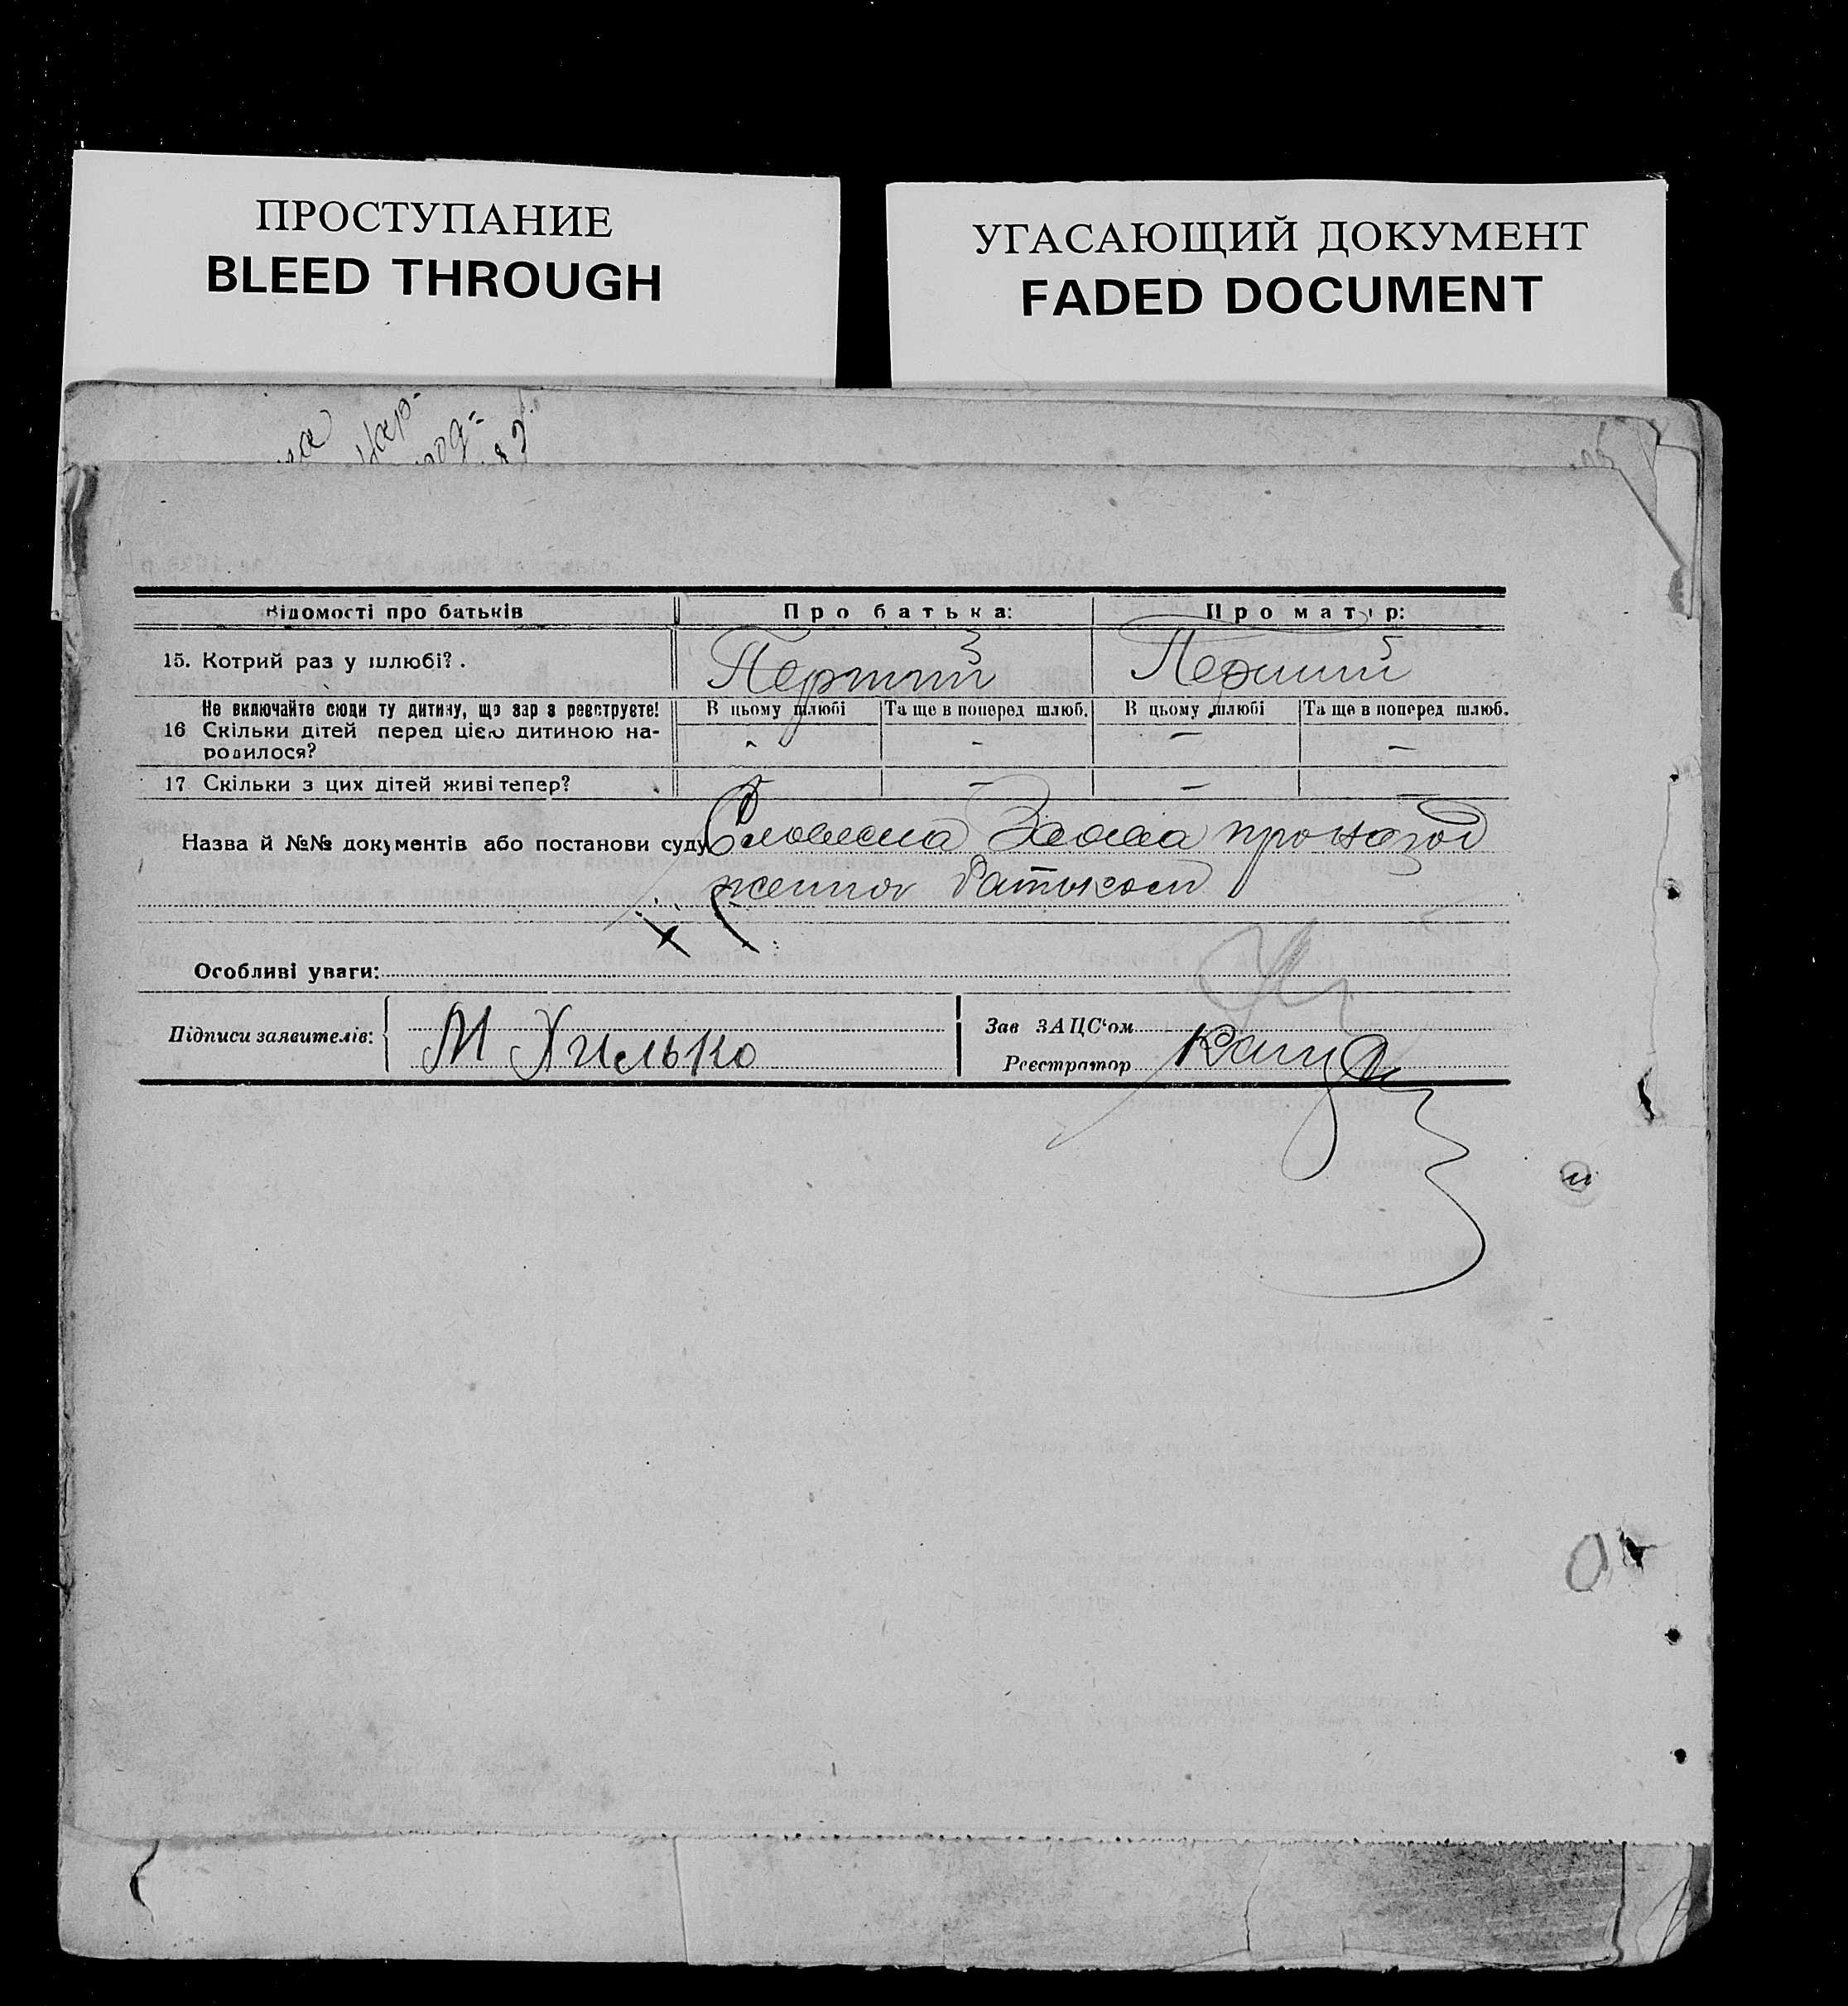 ПРОСТУПАНИЕ
BLEED THROUGH
УГАСАЮЩИЙ ДОКУМЕНТ
FADED DOCUMENT
Відомості про батьків Про батька: Про матір:
15. Котрий раз у шлюбі?. Перший Перший
Не включайте сюди ту дитину, що зар з реєструєте! В цьому шлюбі Та ще в поперед шлюб. В цьому шлюбі Та ще в поперед шлюб.
16 Скільки дітей перед цією дитиною на- - - - -
родилося?
17 Скільки з цих дітей живі тепер? - - - -
Назва й №№ документів або постанови суду Словесна Заява про народ
ження батьком
Особливі уваги:
Підписи заявителів: М Хилько
Зав ЗАЦС'ом
Реєстратор